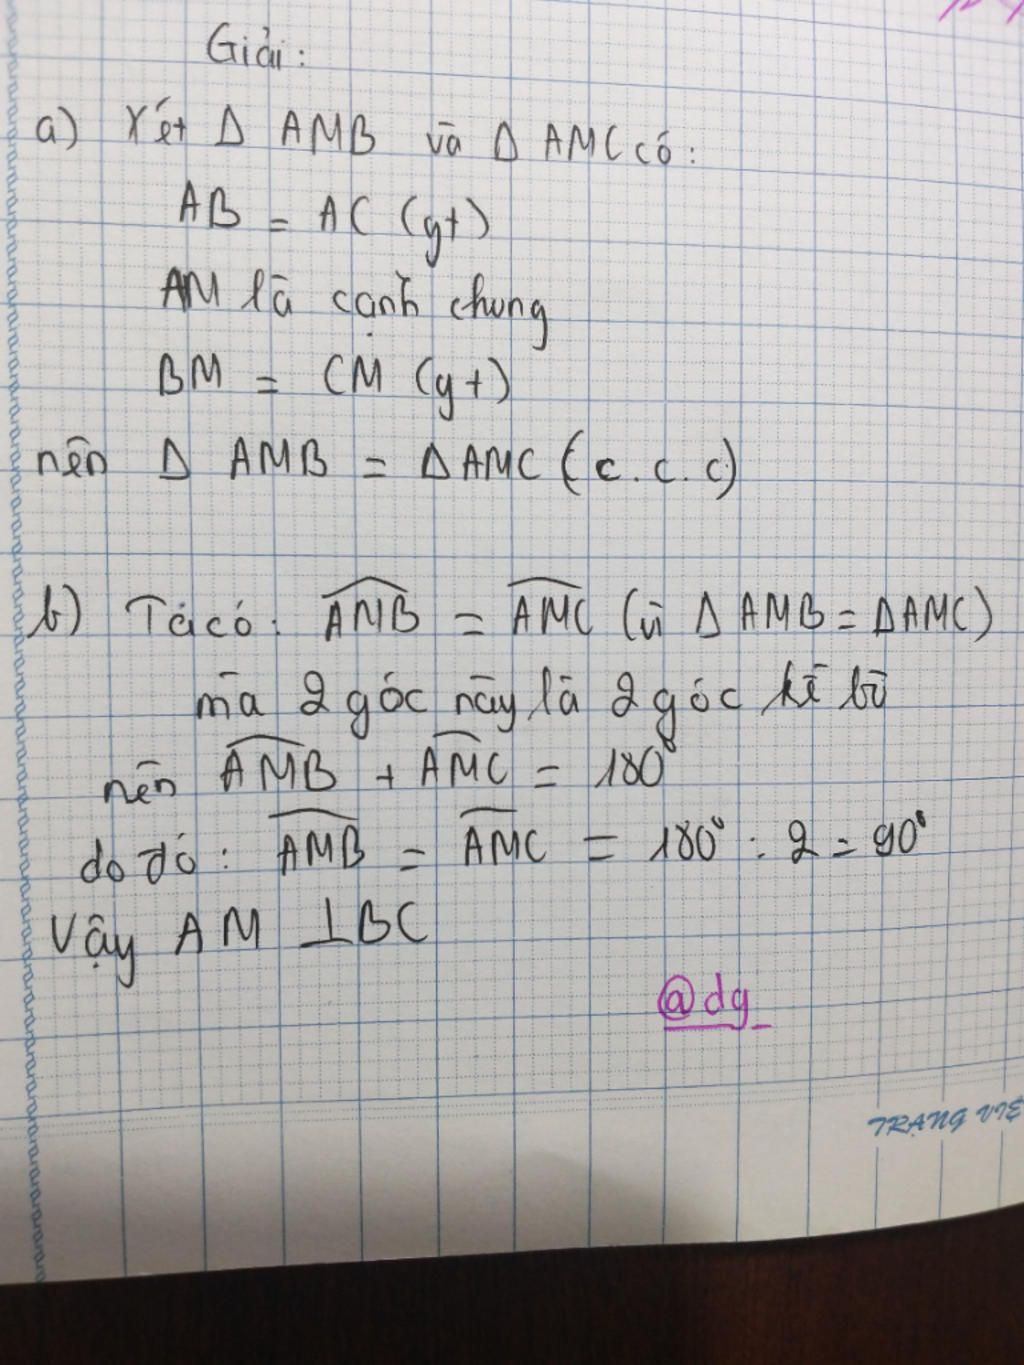 Giải:
a) Xét Δ AMB và Δ AMC có:
AB = AC (gt)
AM là cạnh chung
BM = CM (gt)
nên Δ AMB = Δ AMC (c.c.c)
b) Ta có: \widehat{AMB} = \widehat{AMC} (vì Δ AMB = Δ AMC)
mà 2 góc này là 2 góc kề bù
nên \widehat{AMB} + \widehat{AMC} = 180°
do đó: \widehat{AMB} = \widehat{AMC} = 180° : 2 = 90°
Vậy AM ⊥ BC
@dg_
TRANG VIỆ